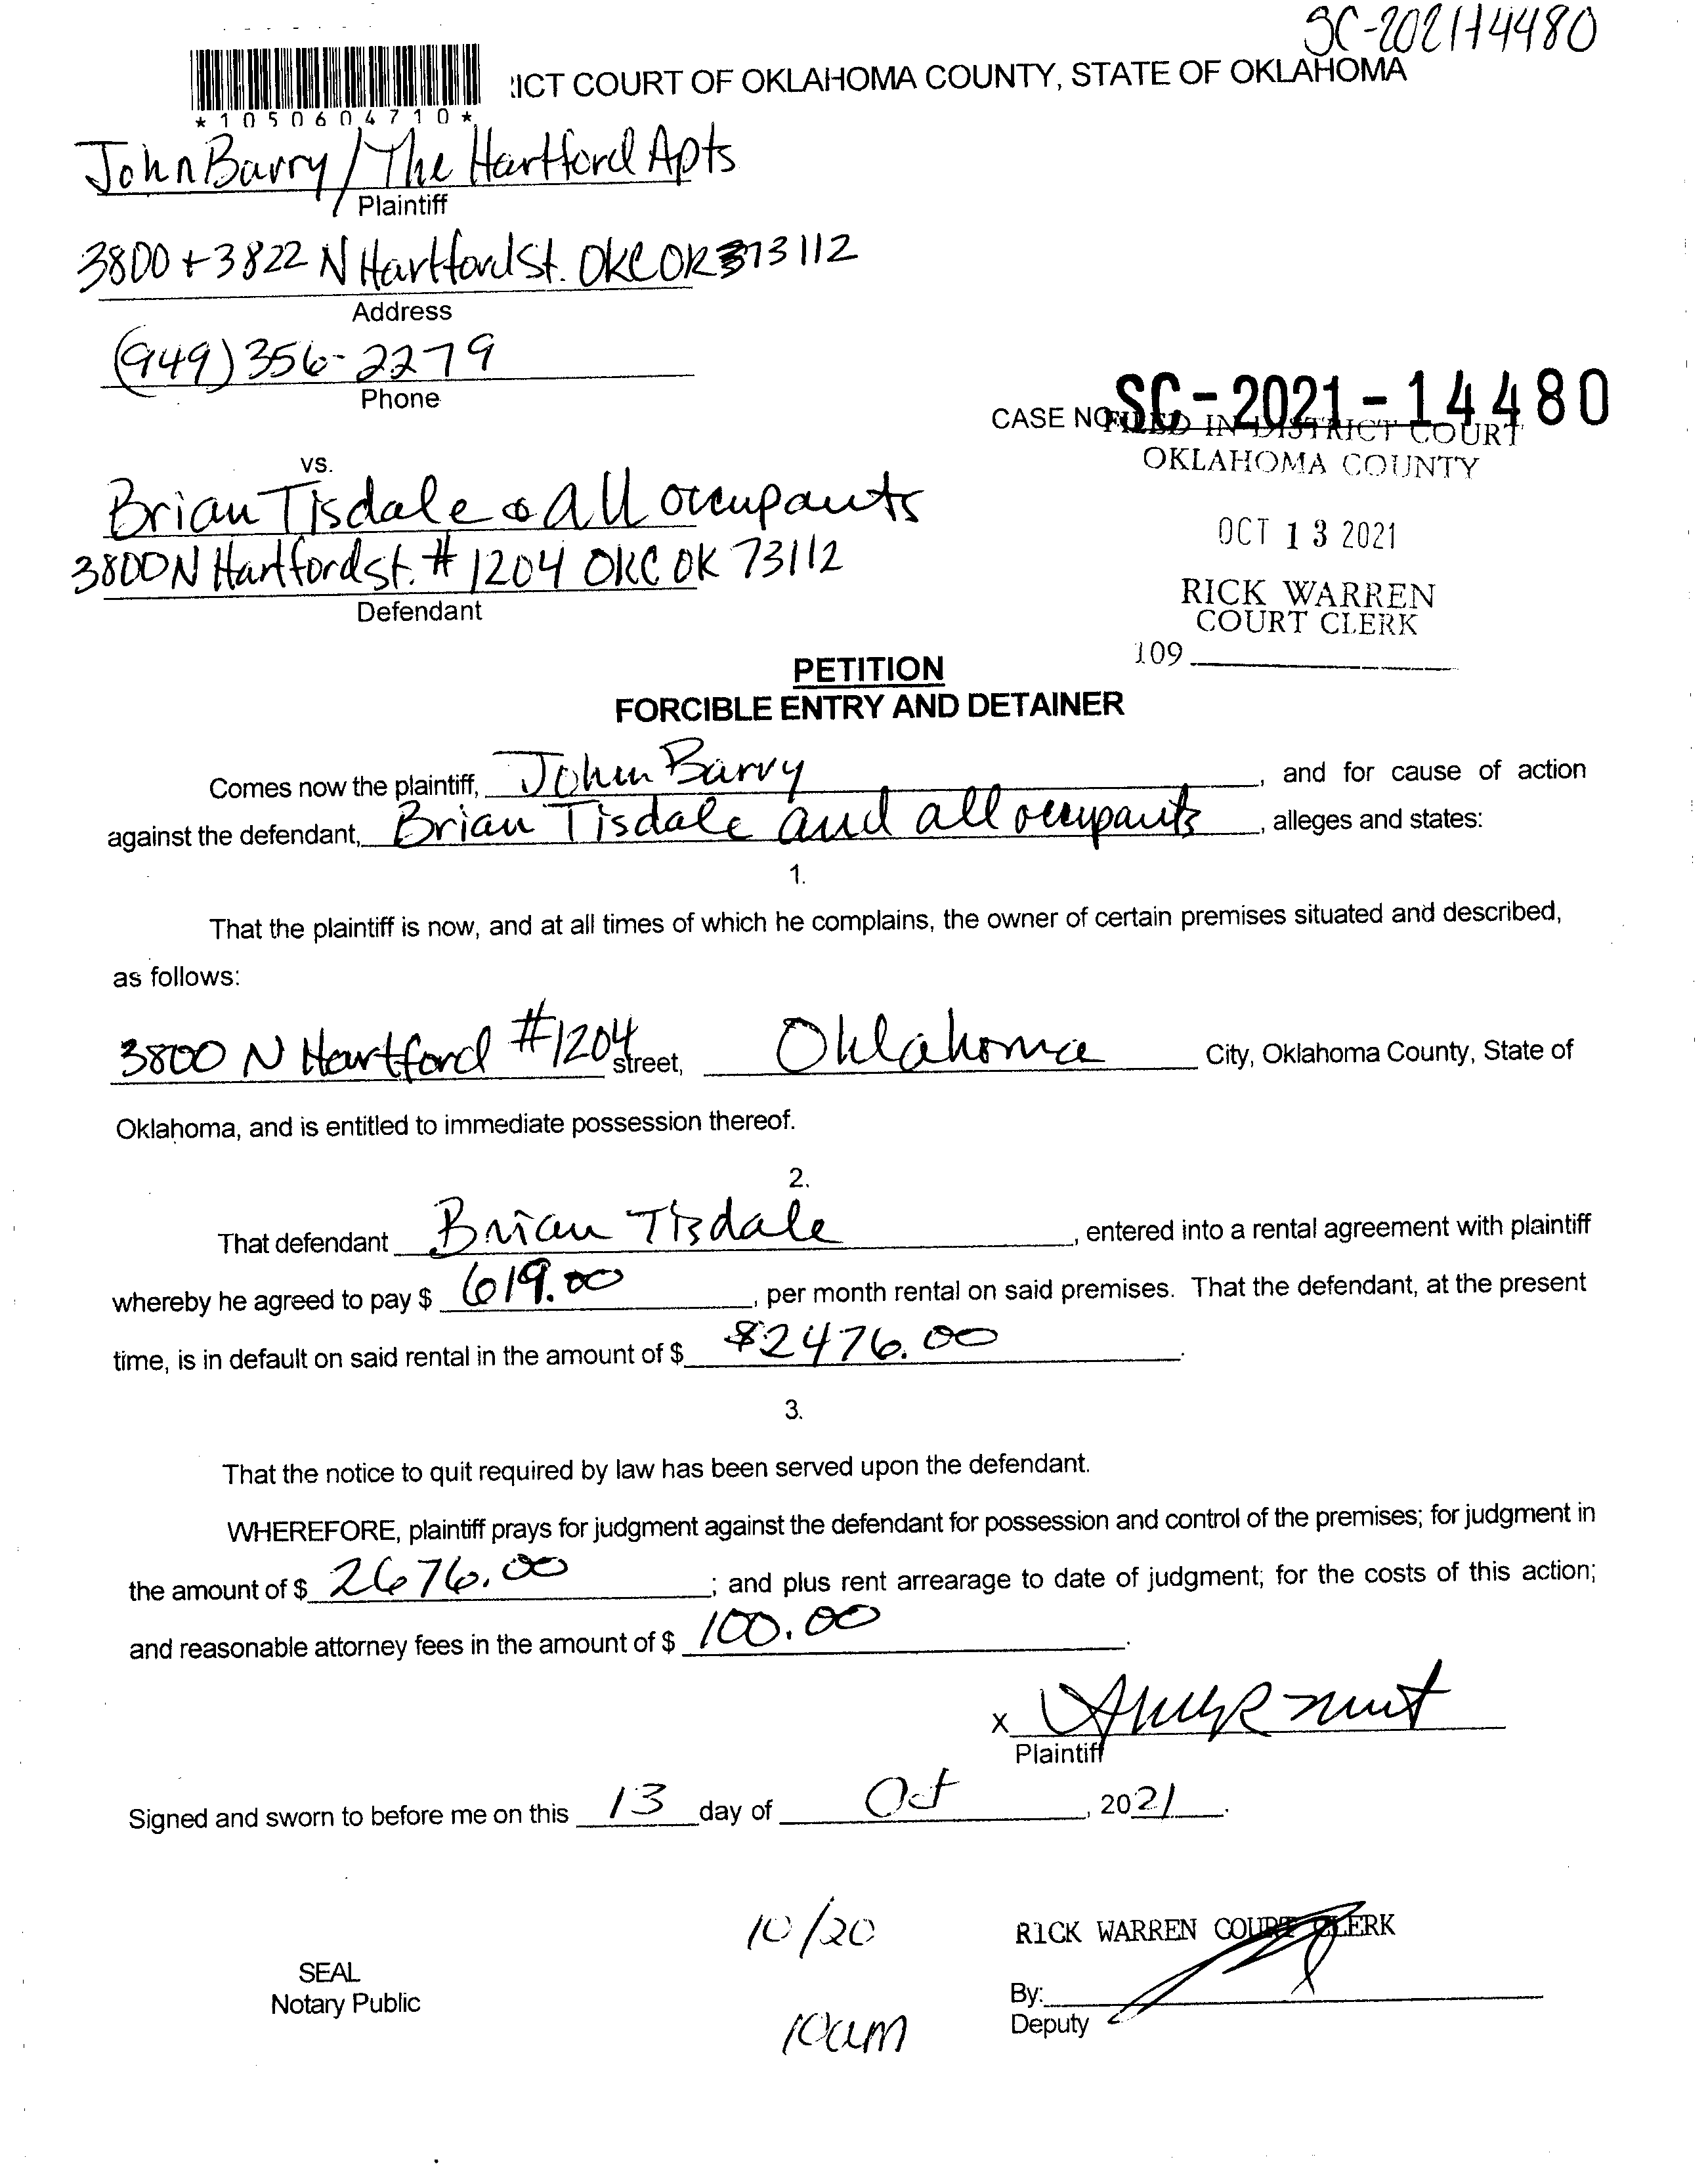 SC-2021-14480
ICT COURT OF OKLAHOMA COUNTY, STATE OF OKLAHOMA
*1050604710*
John Barry / The Hartford Apts
Plaintiff
3800 + 3822 N Hartford St. OKC OK 73112
Address
(949) 356-2279
Phone
CASE NO. SC-2021-14480
FILED IN DISTRICT COURT
OKLAHOMA COUNTY
vs.
Brian Tisdale & all occupants
OCT 13 2021
3800 N Hartford st. #1204 OKC OK 73112
Defendant
RICK WARREN
COURT CLERK
109
PETITION
FORCIBLE ENTRY AND DETAINER
Comes now the plaintiff, John Barry, and for cause of action
against the defendant, Brian Tisdale and all occupants, alleges and states:
1.
That the plaintiff is now, and at all times of which he complains, the owner of certain premises situated and described,
as follows:
3800 N Hartford #1204 street, Oklahoma City, Oklahoma County, State of
Oklahoma, and is entitled to immediate possession thereof.
2.
That defendant Brian Tisdale, entered into a rental agreement with plaintiff
whereby he agreed to pay $ 619.00, per month rental on said premises. That the defendant, at the present
time, is in default on said rental in the amount of $ $2476.00.
3.
That the notice to quit required by law has been served upon the defendant.
WHEREFORE, plaintiff prays for judgment against the defendant for possession and control of the premises; for judgment in
the amount of $ 2676.00; and plus rent arrearage to date of judgment; for the costs of this action;
and reasonable attorney fees in the amount of $ 100.00.
X
Plaintiff
Signed and sworn to before me on this 13 day of Oct, 2021.
10/20
RICK WARREN COURT CLERK
SEAL
Notary Public
By:
10am
Deputy